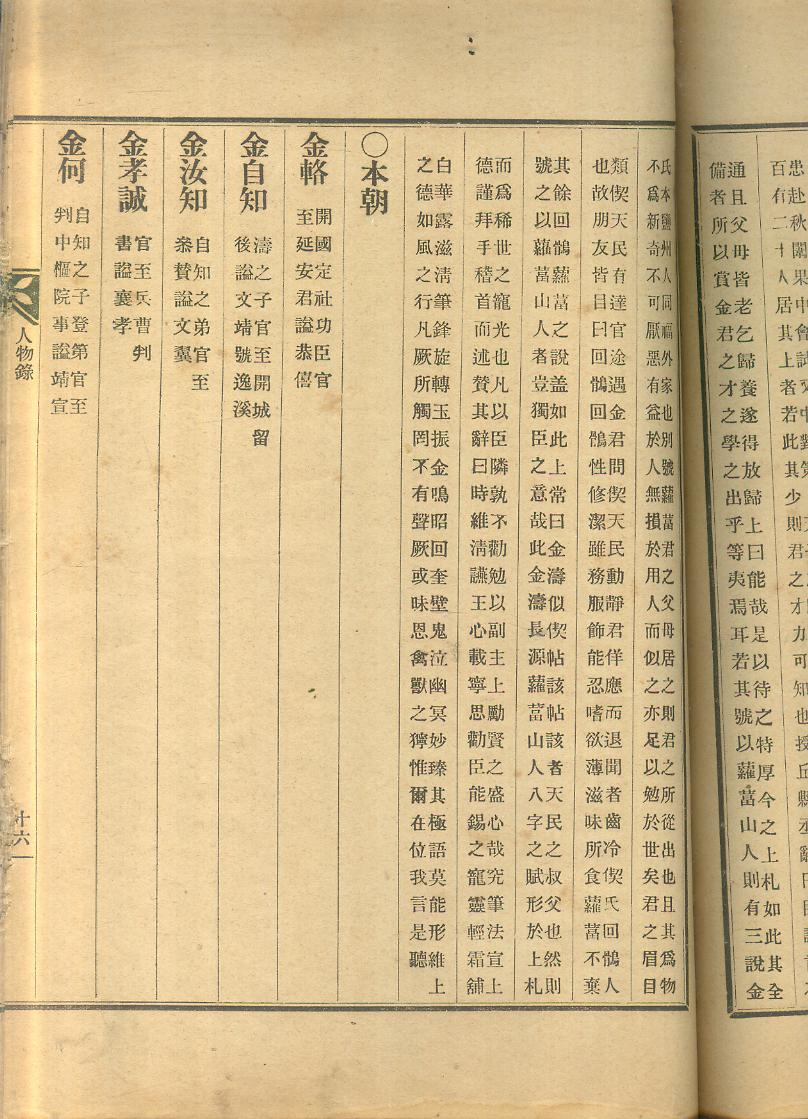 百有二十人居其上者若此其少則
通且父母皆老乞歸養遂得放歸上曰能哉是以待之特厚今之上札如此其全
備者所以賞金君之才之學之出乎等夷焉耳若其號以蘿葍山人則有三說金
氏本鹽州人同福外家也別號蘿葍君之父母居之則君之所從出也且其爲物
不爲新奇不可厭惡有益於人無損於用人而似之亦足以勉於世矣君之眉目
類偰天民有達官途遇金君問偰天民動靜君佯應而退聞者齒冷偰氏回鶻人
也故朋友皆目曰回鶻回鶻性修潔雖務服飾能忍嗜欲薄滋味所食蘿葍不棄
其餘回鶻蘿葍之說盖如此上常曰金濤似偰帖該帖該者天民之叔父也然則
號之以蘿葍山人者豈獨臣之意哉此金濤長源蘿葍山人八字之賦形於上札
而爲稀世之寵光也凡以臣隣孰不勸勉以副主上勵賢之盛心哉究筆法宣上
德謹拜手稽首而述賛其辭曰時維淸讌王心載寧思勸臣能錫之寵靈輕霜舖
白華露滋淸筆鋒旋轉玉振金鳴昭回奎壁鬼泣幽冥妙臻其極語莫能形維上
之德如風之行凡厥所觸罔不有聲厥或味恩禽獸之獰惟爾在位我言是聽
○本朝
金輅
開國定社功臣官
至延安君謚恭僖
金自知
濤之子官至開城留
後謚文靖號逸溪
金汝知
自知之弟官至
叅賛謚文翼
金孝誠
官至兵曹判
書謚襄孝
金何
自知之子登第官至
判中樞院事謚靖宣
人物錄
十六